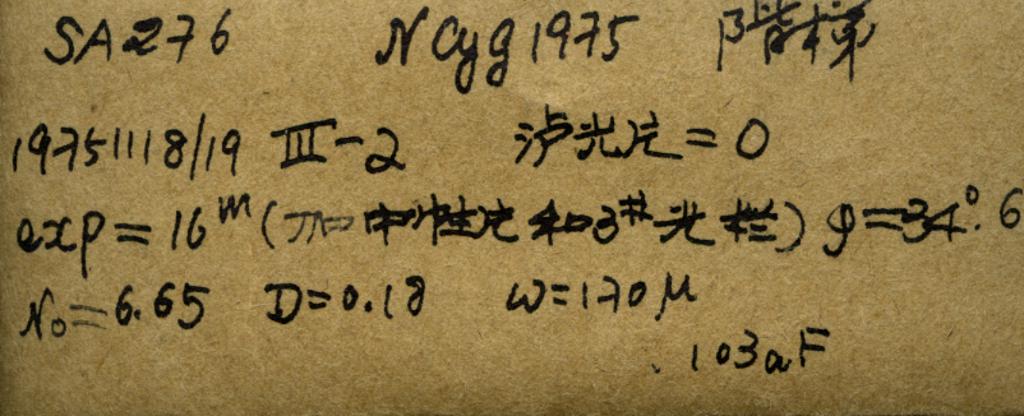 SA276 N Cyg 1975 阶梯
19751118/19 III-2 滤光片=0
exp=16ᵐ(加中性片和3#光栏) φ=34°.6
N₀=6.65 D=0.18 ω=170μ
.103aF